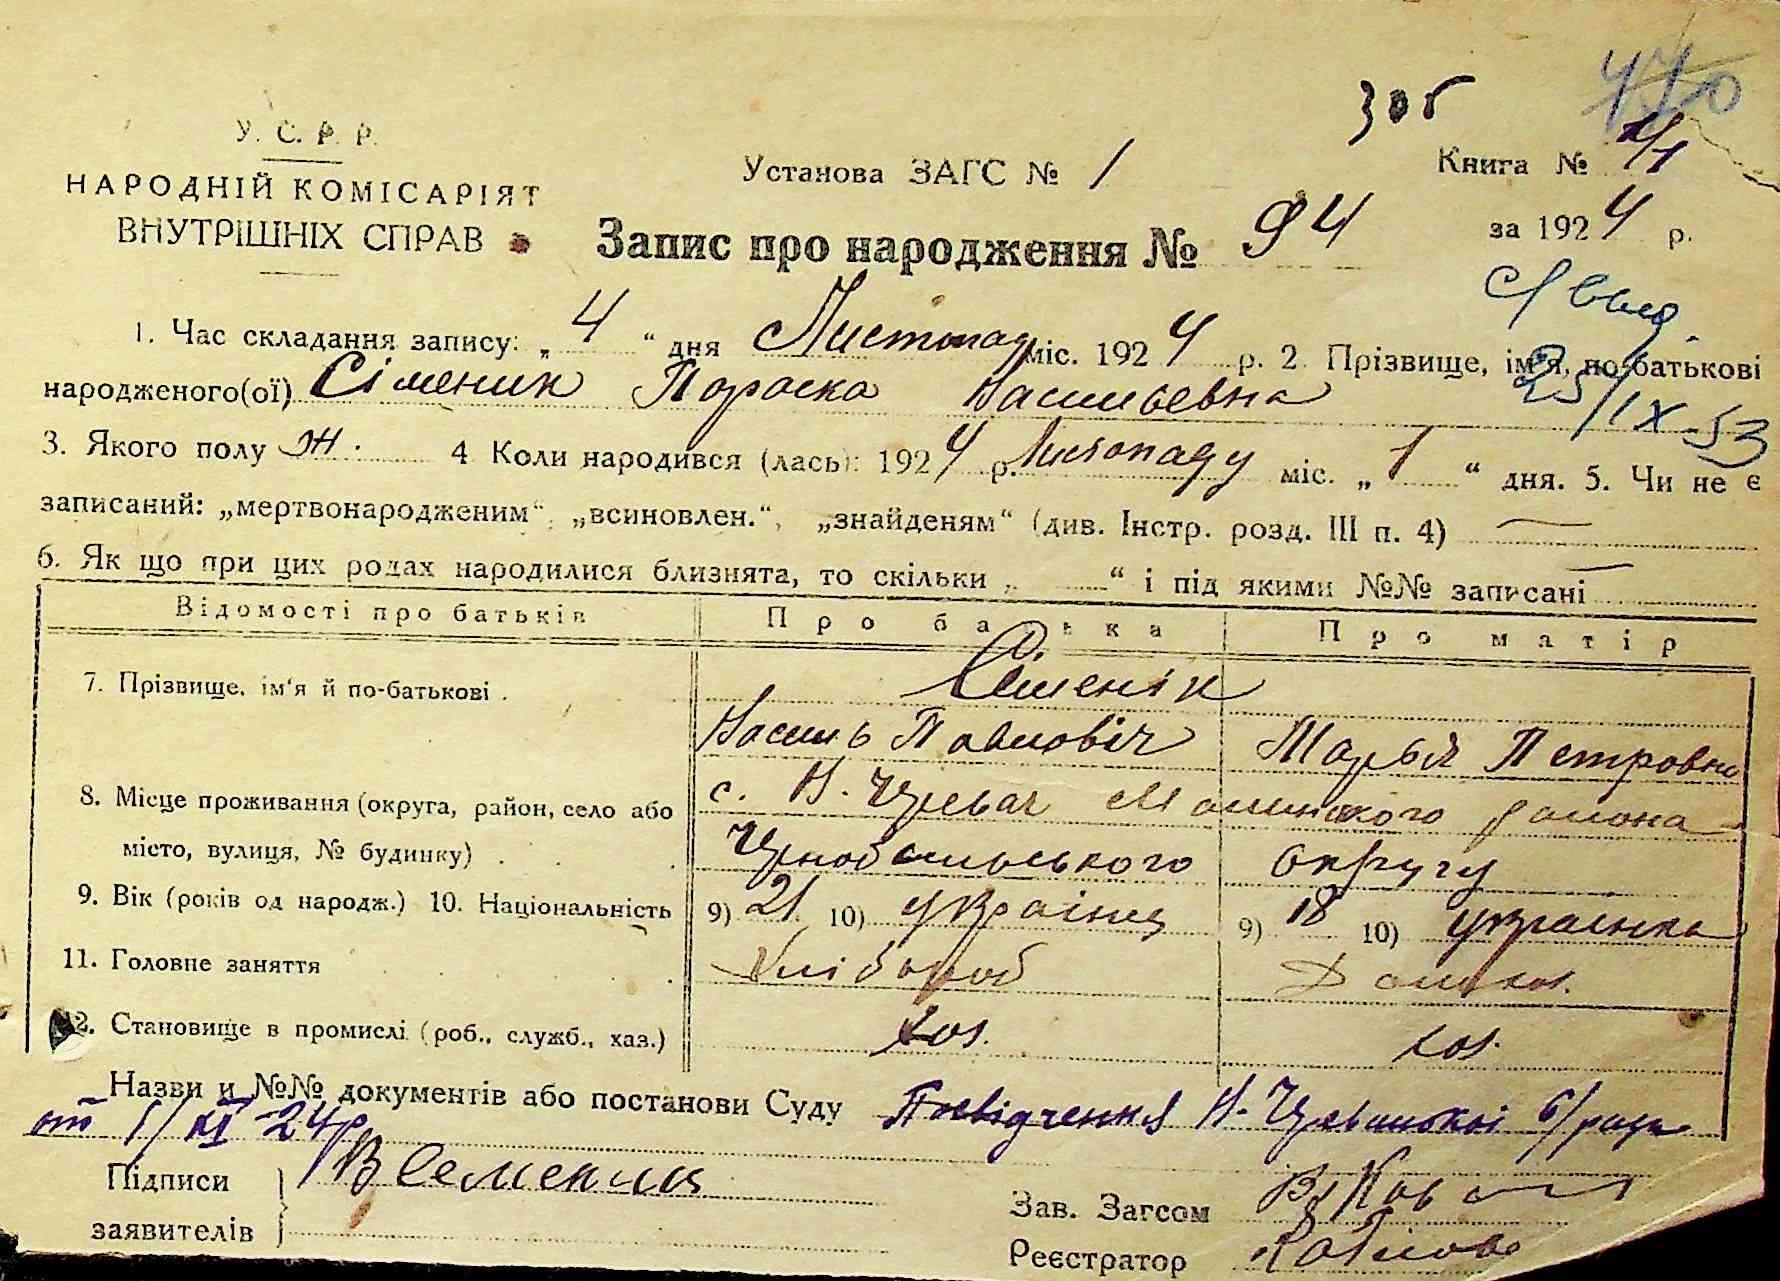 305
470
У. С. Р. Р.
НАРОДНІЙ КОМІСАРІЯТ
ВНУТРІШНІХ СПРАВ
Установа ЗАГС № 1
Книга №
за 1924 р.
Запис про народження № 94
1. Час складання запису: „ 4 “ дня Листопад міс. 1924 р. 2. Прізвище, ім'я, по-батькові
25/IX-53
народженого(ої) Сіменик Параска Васильевна
3. Якого полу ж. 4 Коли народився (лась): 1924 р. Листопаду міс. „ 1 “ дня. 5. Чи не є
записаний: „мертвонародженим“, „всиновлен.“, „знайденям“ (див. Інстр. розд. III п. 4)
6. Як що при цих родах народилися близнята, то скільки „ “ і під якими №№ записані
Відомості про батьків Про батька Про матір
7. Прізвище, ім'я й по-батькові . Сіменік
Василь Павловіч Марья Петровна
8. Місце проживання (округа, район, село або с. Н. Чревач района
місто, вулиця, № будинку) . . Округу
9. Вік (років од народж.) 10. Національність 9) 21 10) українец 9) 18 10) украінка
11. Головне заняття Хлібороб Домхоз.
12. Становище в промислі (роб., служб., хаз.) хоз. хоз.
Назви и №№ документів або постанови Суду Посвідчення Н-Чревацької с/ради
от 1/XI-24р
Підписи В Семениц
заявителів
Зав. Загсом
Реєстратор